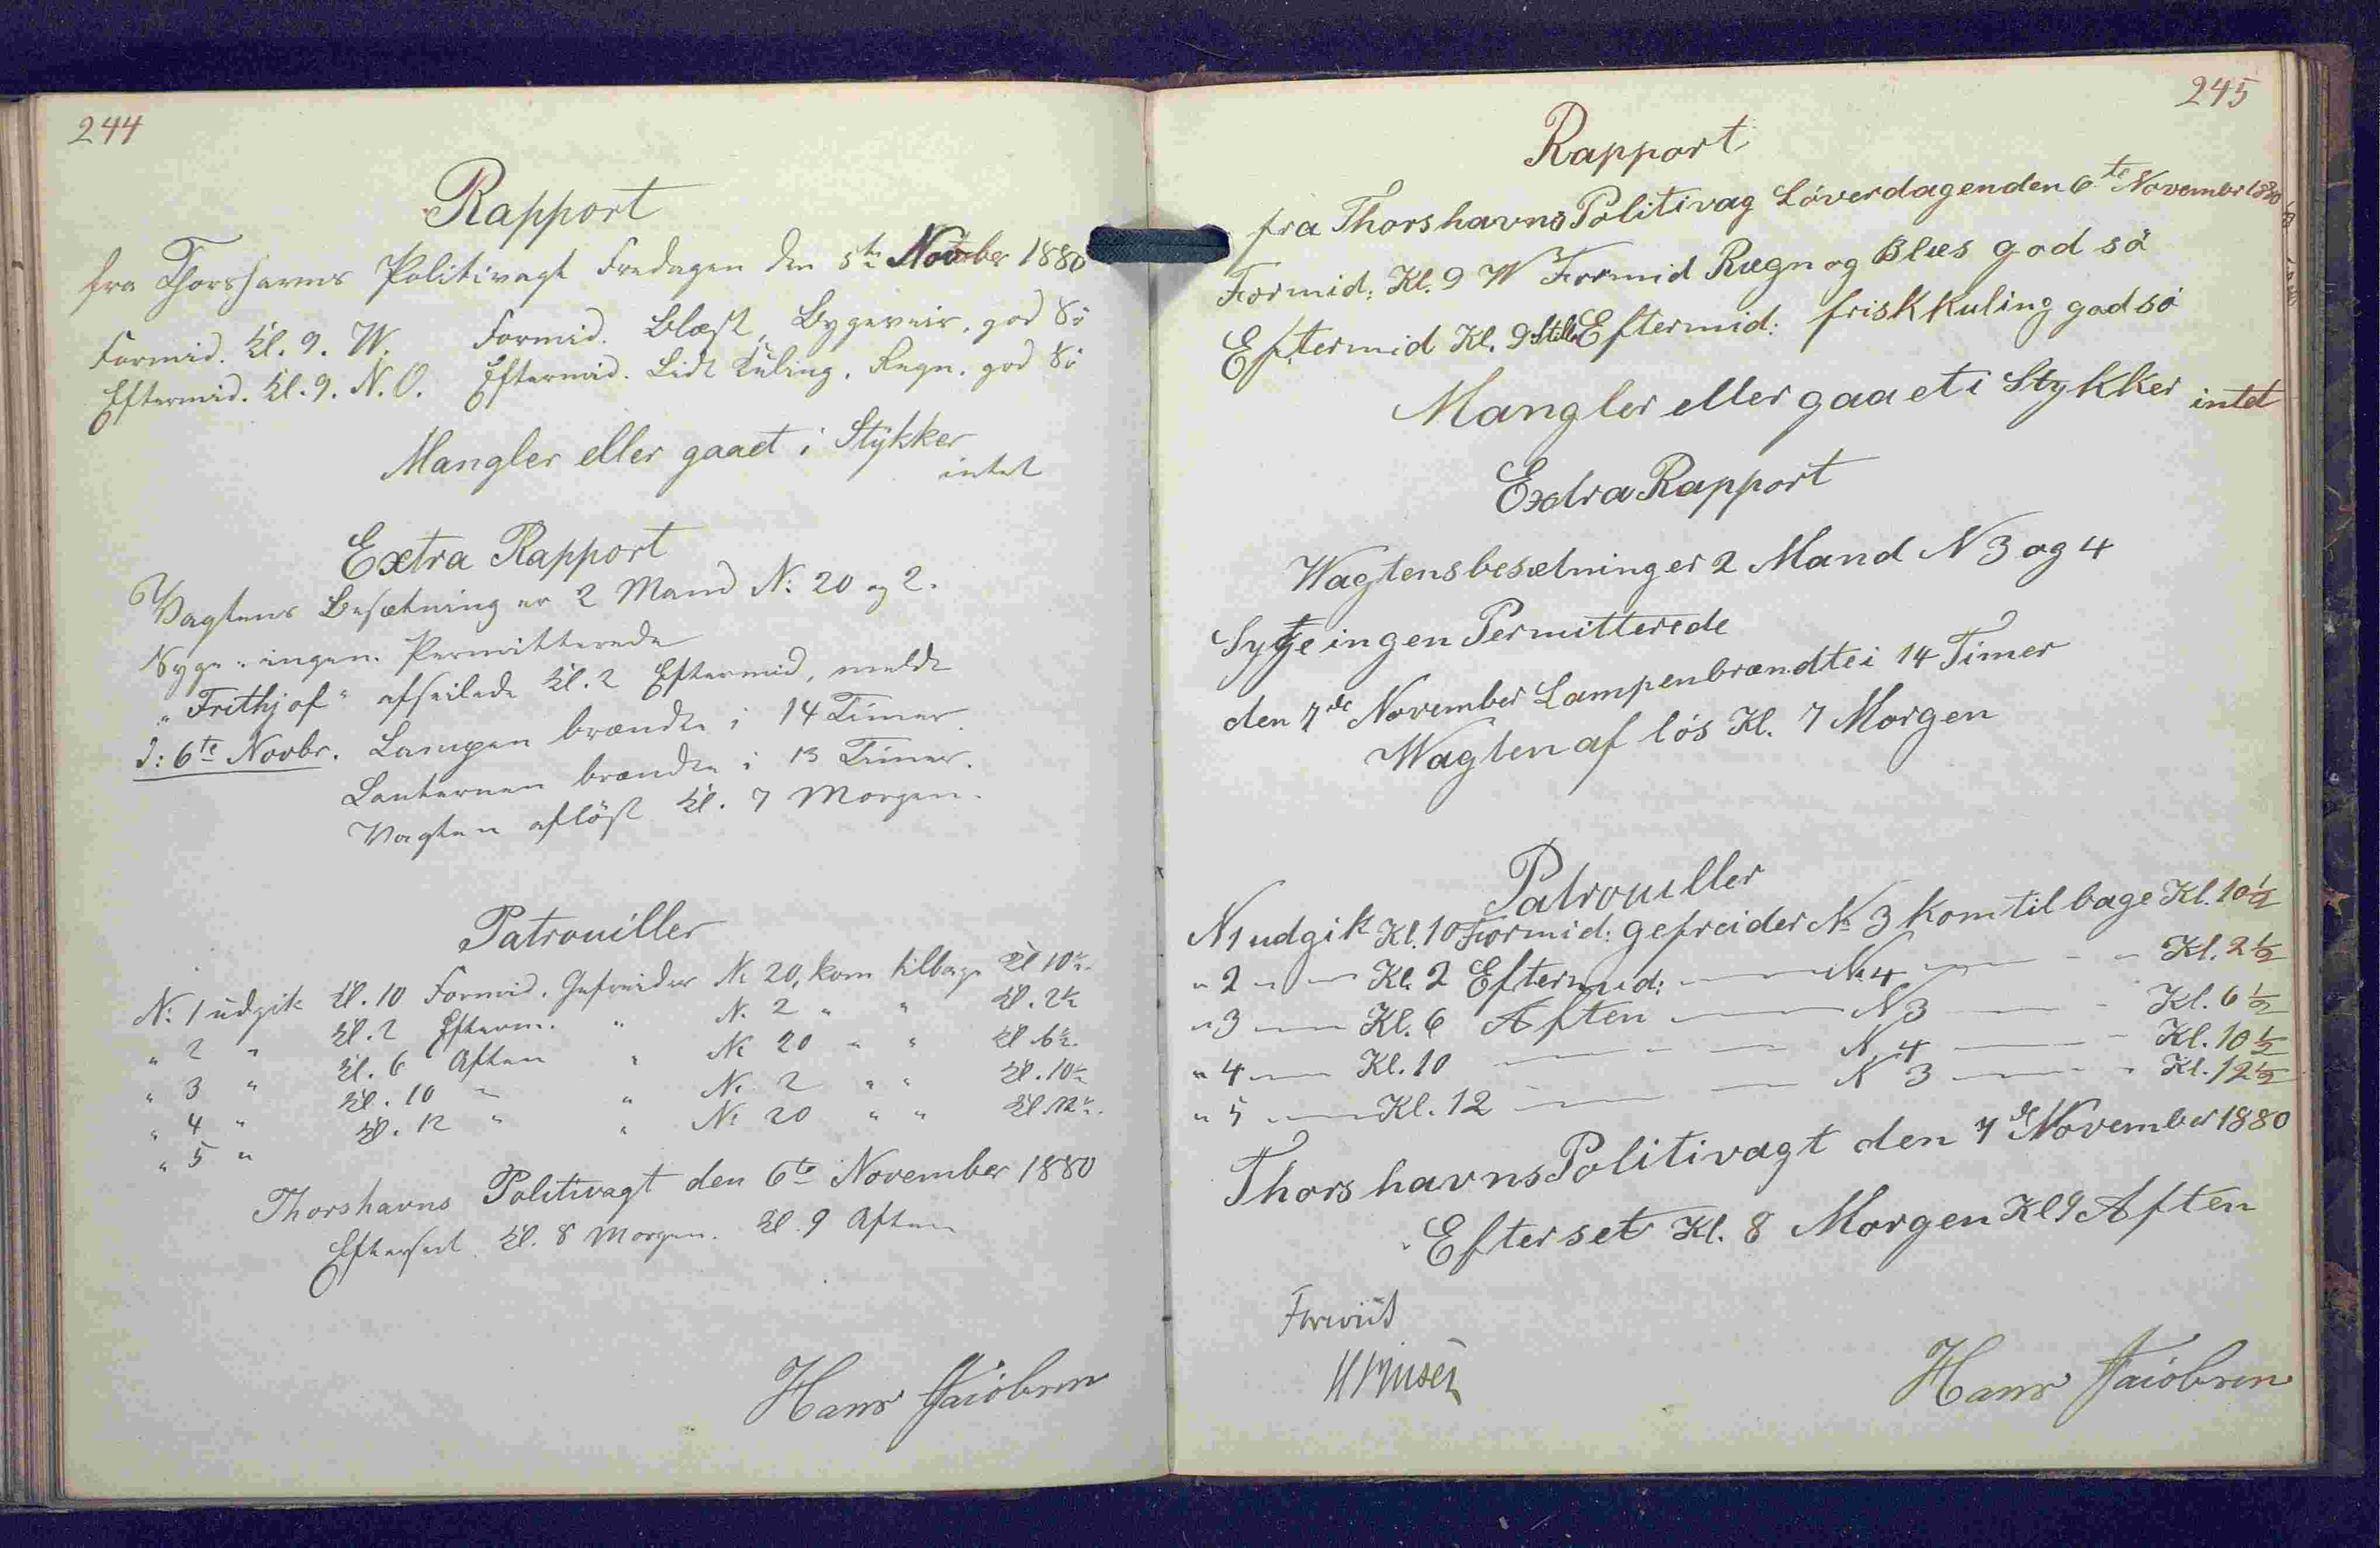 244
Rapport
fra Thorshavns Politivagt Fredagen den 5te Novbr 1880
Formid. Kl. 9. W. Formid. Blæst, Bygeveir, god Sö
Eftermid. Kl. 9. N.O. Eftermid. Lidt Kuling, Regn, god Sö
Mangler eller gaaet i Stykker
intet
Extra Rapport
Vagtens Besætning er 2 Mand N: 20 og 2.
Syge: ingen. Permitterede
"Frithjof" afseilede Kl. 2 Eftermid,
d: 6te Novbr. Lampen brændte i 14 Timer
Lanternen brændte i 13 Timer.
Vagten aflöst Kl. 7 Morgen.
Patrouiller
N: 1 udgik Kl. 10 Formid. Gefreider N: 20, kom tilbage Kl 10½
" 2 " Kl. 2 Efterm. " N: 2 " " Kl. 2½
" 3 " Kl. 6 Aften " N: 20 " " Kl 6½
" 4 " Kl. 10 " " N: 2 " " Kl. 10½
" 5 " Kl. 12 " " N: 20 " " Kl. 12½
Thorshavns Politivagt den 6te November 1880
Efterseet Kl. 8 Morgen. Kl. 9 Aften
Hans Jacobsen
245
Rapport
fra Thorshavns Politivag Löverdagen den 6te November 1880
Formid: Kl. 9 W Formid Rægn og Blæs god sö
Eftermid Kl. 9 Stille Eftermid: frisk kuling god sö
Mangler eller gaaet i Stykker intet
Extra Rapport
Wagtens besætning er 2 Mand N 3 og 4
Syge ingen Permitterede
den 7de November Lampen brændte i 14 Timer
Wagten af lös Kl. 7 Morgen
Patrouiller
N 1 udgik Kl. 10 Formid: gefreider No 3 kom tilbage Kl. 10½
" 2 " — Kl. 2 Eftermid: — N. 4 — " " Kl. 2½
" 3 — Kl. 6 Aften — N 3 — " Kl. 6½
" 4 — Kl. 10 — — N. 4 — " Kl. 10½
" 5 — Kl. 12 — — N 3 — " Kl. 12½
Thorshavns Politivagt den 7de November 1880
Efterset Kl. 8 Morgen Kl 9 Aften
Foreviist
Hans Jacobsen